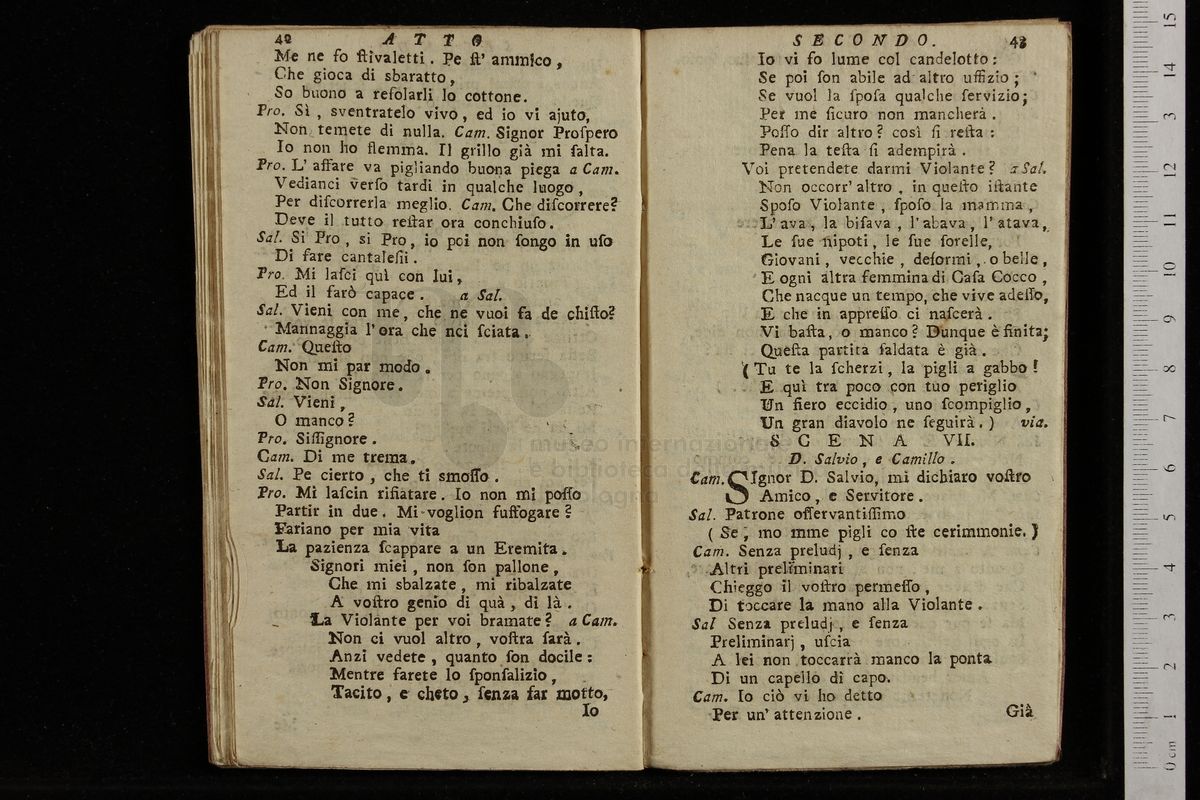 42 ATTO
Me ne fo ſtivaletti. Pe ſt' ammico,
Che gioca di sbaratto,
So buono a refolarli lo cottone.
Pro. Sì, sventratelo vivo, ed io vi ajuto,
Non temete di nulla. Cam. Signor Proſpero
Io non ho flemma. Il grillo già mi ſalta.
Pro. L' affare va pigliando buona piega a Cam.
Vedianci verſo tardi in qualche luogo,
Per diſcorrerla meglio. Cam. Che diſcorrere?
Deve il tutto reſtar ora conchiuſo.
Sal. Si Pro, si Pro, io poi non ſongo in uſo
Di fare cantaleſii.
Pro. Mi laſci quì con lui,
Ed il farò capace. a Sal.
Sal. Vieni con me, che ne vuoi fa de chiſto?
Mannaggia l'ora che nci ſciata.
Cam. Queſto
Non mi par modo.
Pro. Non Signore.
Sal. Vieni,
O manco?
Pro. Siſſignore.
Cam. Di me trema.
Sal. Pe cierto, che ti smoſſo.
Pro. Mi laſcin rifiatare. Io non mi poſſo
Partir in due. Mi voglion ſuffogare?
Fariano per mia vita
La pazienza ſcappare a un Eremita.
Signori miei, non ſon pallone,
Che mi sbalzate, mi ribalzate
A voſtro genio di quà, di là.
La Violante per voi bramate? a Cam.
Non ci vuol altro, voſtra ſarà.
Anzi vedete, quanto ſon docile:
Mentre farete lo ſponſalizio,
Tacito, e cheto, ſenza far motto,
Io
SECONDO. 43
Io vi fo lume col candelotto:
Se poi ſon abile ad altro uffizio;
Se vuol la ſpoſa qualche ſervizio;
Per me ſicuro non mancherà.
Poſſo dir altro? così ſi reſta:
Pena la teſta ſi adempirà.
Voi pretendete darmi Violante? a Sal.
Non occorr'altro, in queſto iſtante
Spoſo Violante, ſpoſo la mamma,
L'ava, la biſava, l'abava, l'atava,
Le ſue nipoti, le ſue ſorelle,
Giovani, vecchie, deformi, o belle,
E ogni altra femmina di Caſa Cocco,
Che nacque un tempo, che vive adeſſo,
E che in appreſſo ci naſcerà.
Vi baſta, o manco? Dunque è finita;
Queſta partita ſaldata è già.
(Tu te la ſcherzi, la pigli a gabbo!
E quì tra poco con tuo periglio
Un fiero eccidio, uno ſcompiglio,
Un gran diavolo ne ſeguirà.) via.
SCENA VII.
D. Salvio, e Camillo.
Cam. SIgnor D. Salvio, mi dichiaro voſtro
Amico, e Servitore.
Sal. Patrone oſſervantiſſimo
(Se, mo mme pigli co ſte cerimmonie.)
Cam. Senza preludj, e ſenza
Altri preliminari
Chieggo il voſtro permeſſo,
Di toccare la mano alla Violante.
Sal Senza preludj, e ſenza
Preliminarj, uſcia
A lei non toccarrà manco la ponta
Di un capello di capo.
Cam. Io ciò vi ho detto
Per un' attenzione.
Già
museo internazionale
e biblioteca della musica
di bologna
0 cm 1 2 3 4 5 6 7 8 9 10 11 12 13 14 15